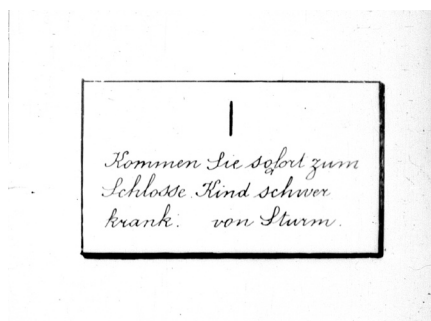 Kommen Sie sofort zum
Schlosse. Kind schwer
krank. von Sturm.